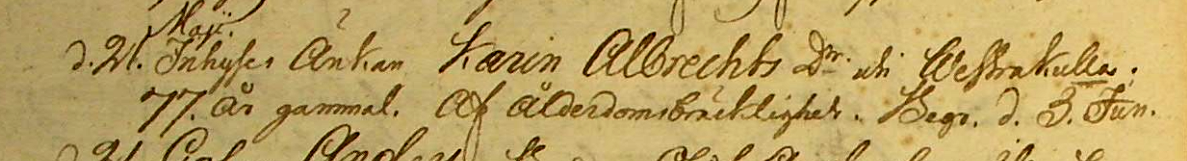 Maji.
d. 21. Inhyses Änkan Karin Albrechts Dr. uti Westrakulla.
77. år gammal. Af ålderdomsbräcklighet. Begr. d. 3. Jun.
d 21